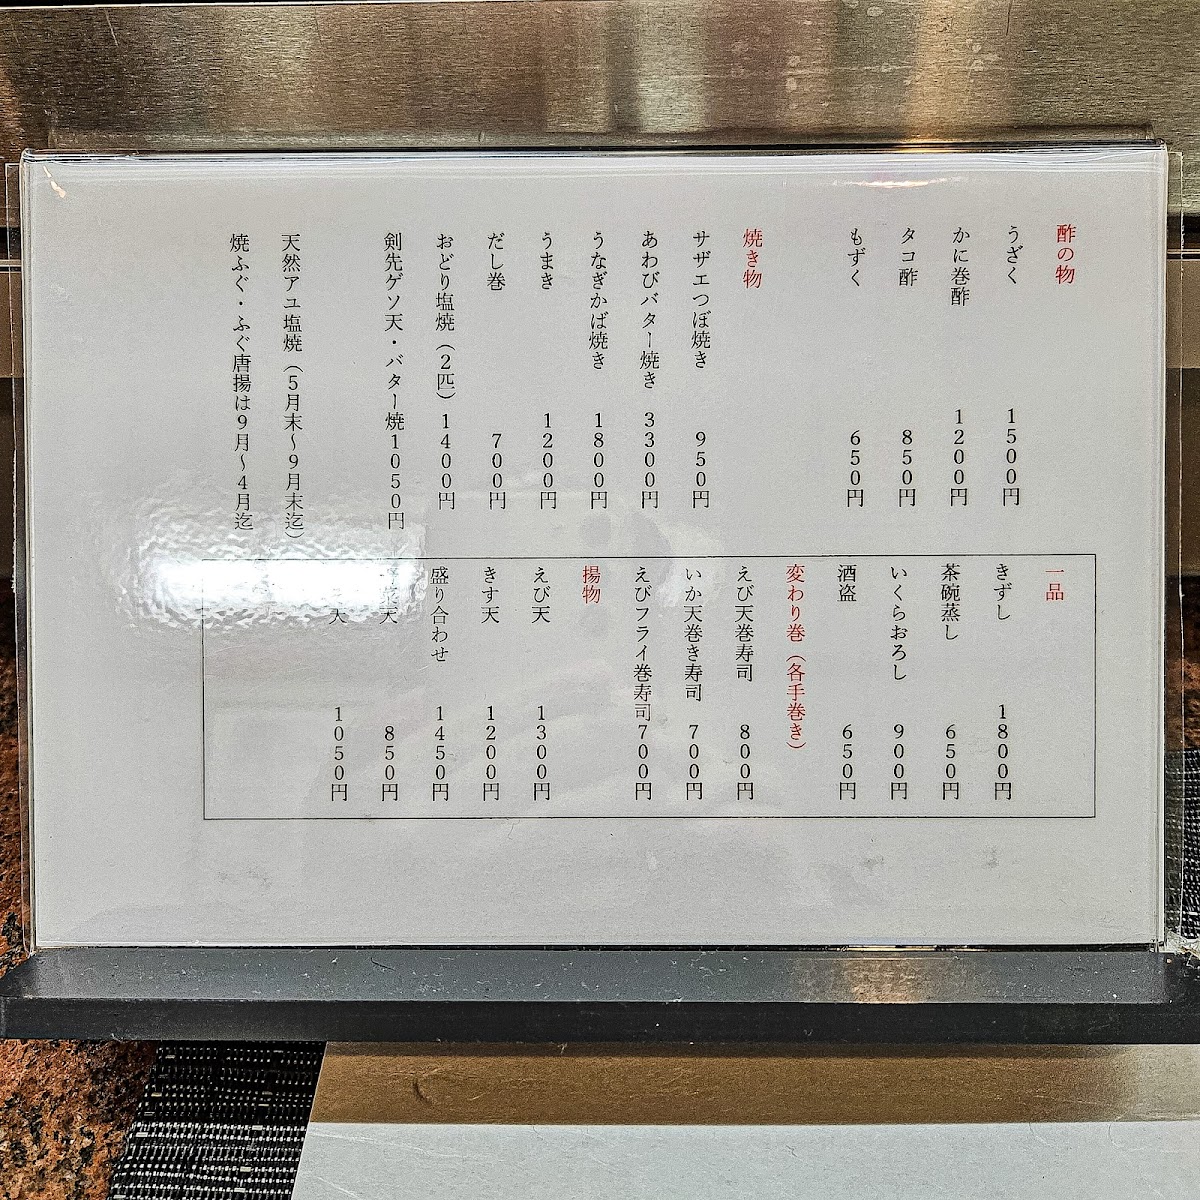 酢の物
うざく 1500円
かに巻酢 1200円
タコ酢 850円
もずく 650円
焼き物
サザエつぼ焼き 950円
あわびバター焼き 3300円
うなぎかば焼き 1800円
うまき 1200円
だし巻 700円
おどり塩焼（2匹）1400円
剣先ゲソ天・バター焼1050円
天然アユ塩焼（5月末～9月末迄）
焼ふぐ・ふぐ唐揚は9月～4月迄
一品
きずし 1800円
茶碗蒸し 650円
いくらおろし 900円
酒盗 650円
変わり巻（各手巻き）
えび天巻寿司 800円
いか天巻き寿司 700円
えびフライ巻寿司700円
揚物
えび天 1300円
きす天 1200円
盛り合わせ 1450円
天 850円
天 1050円